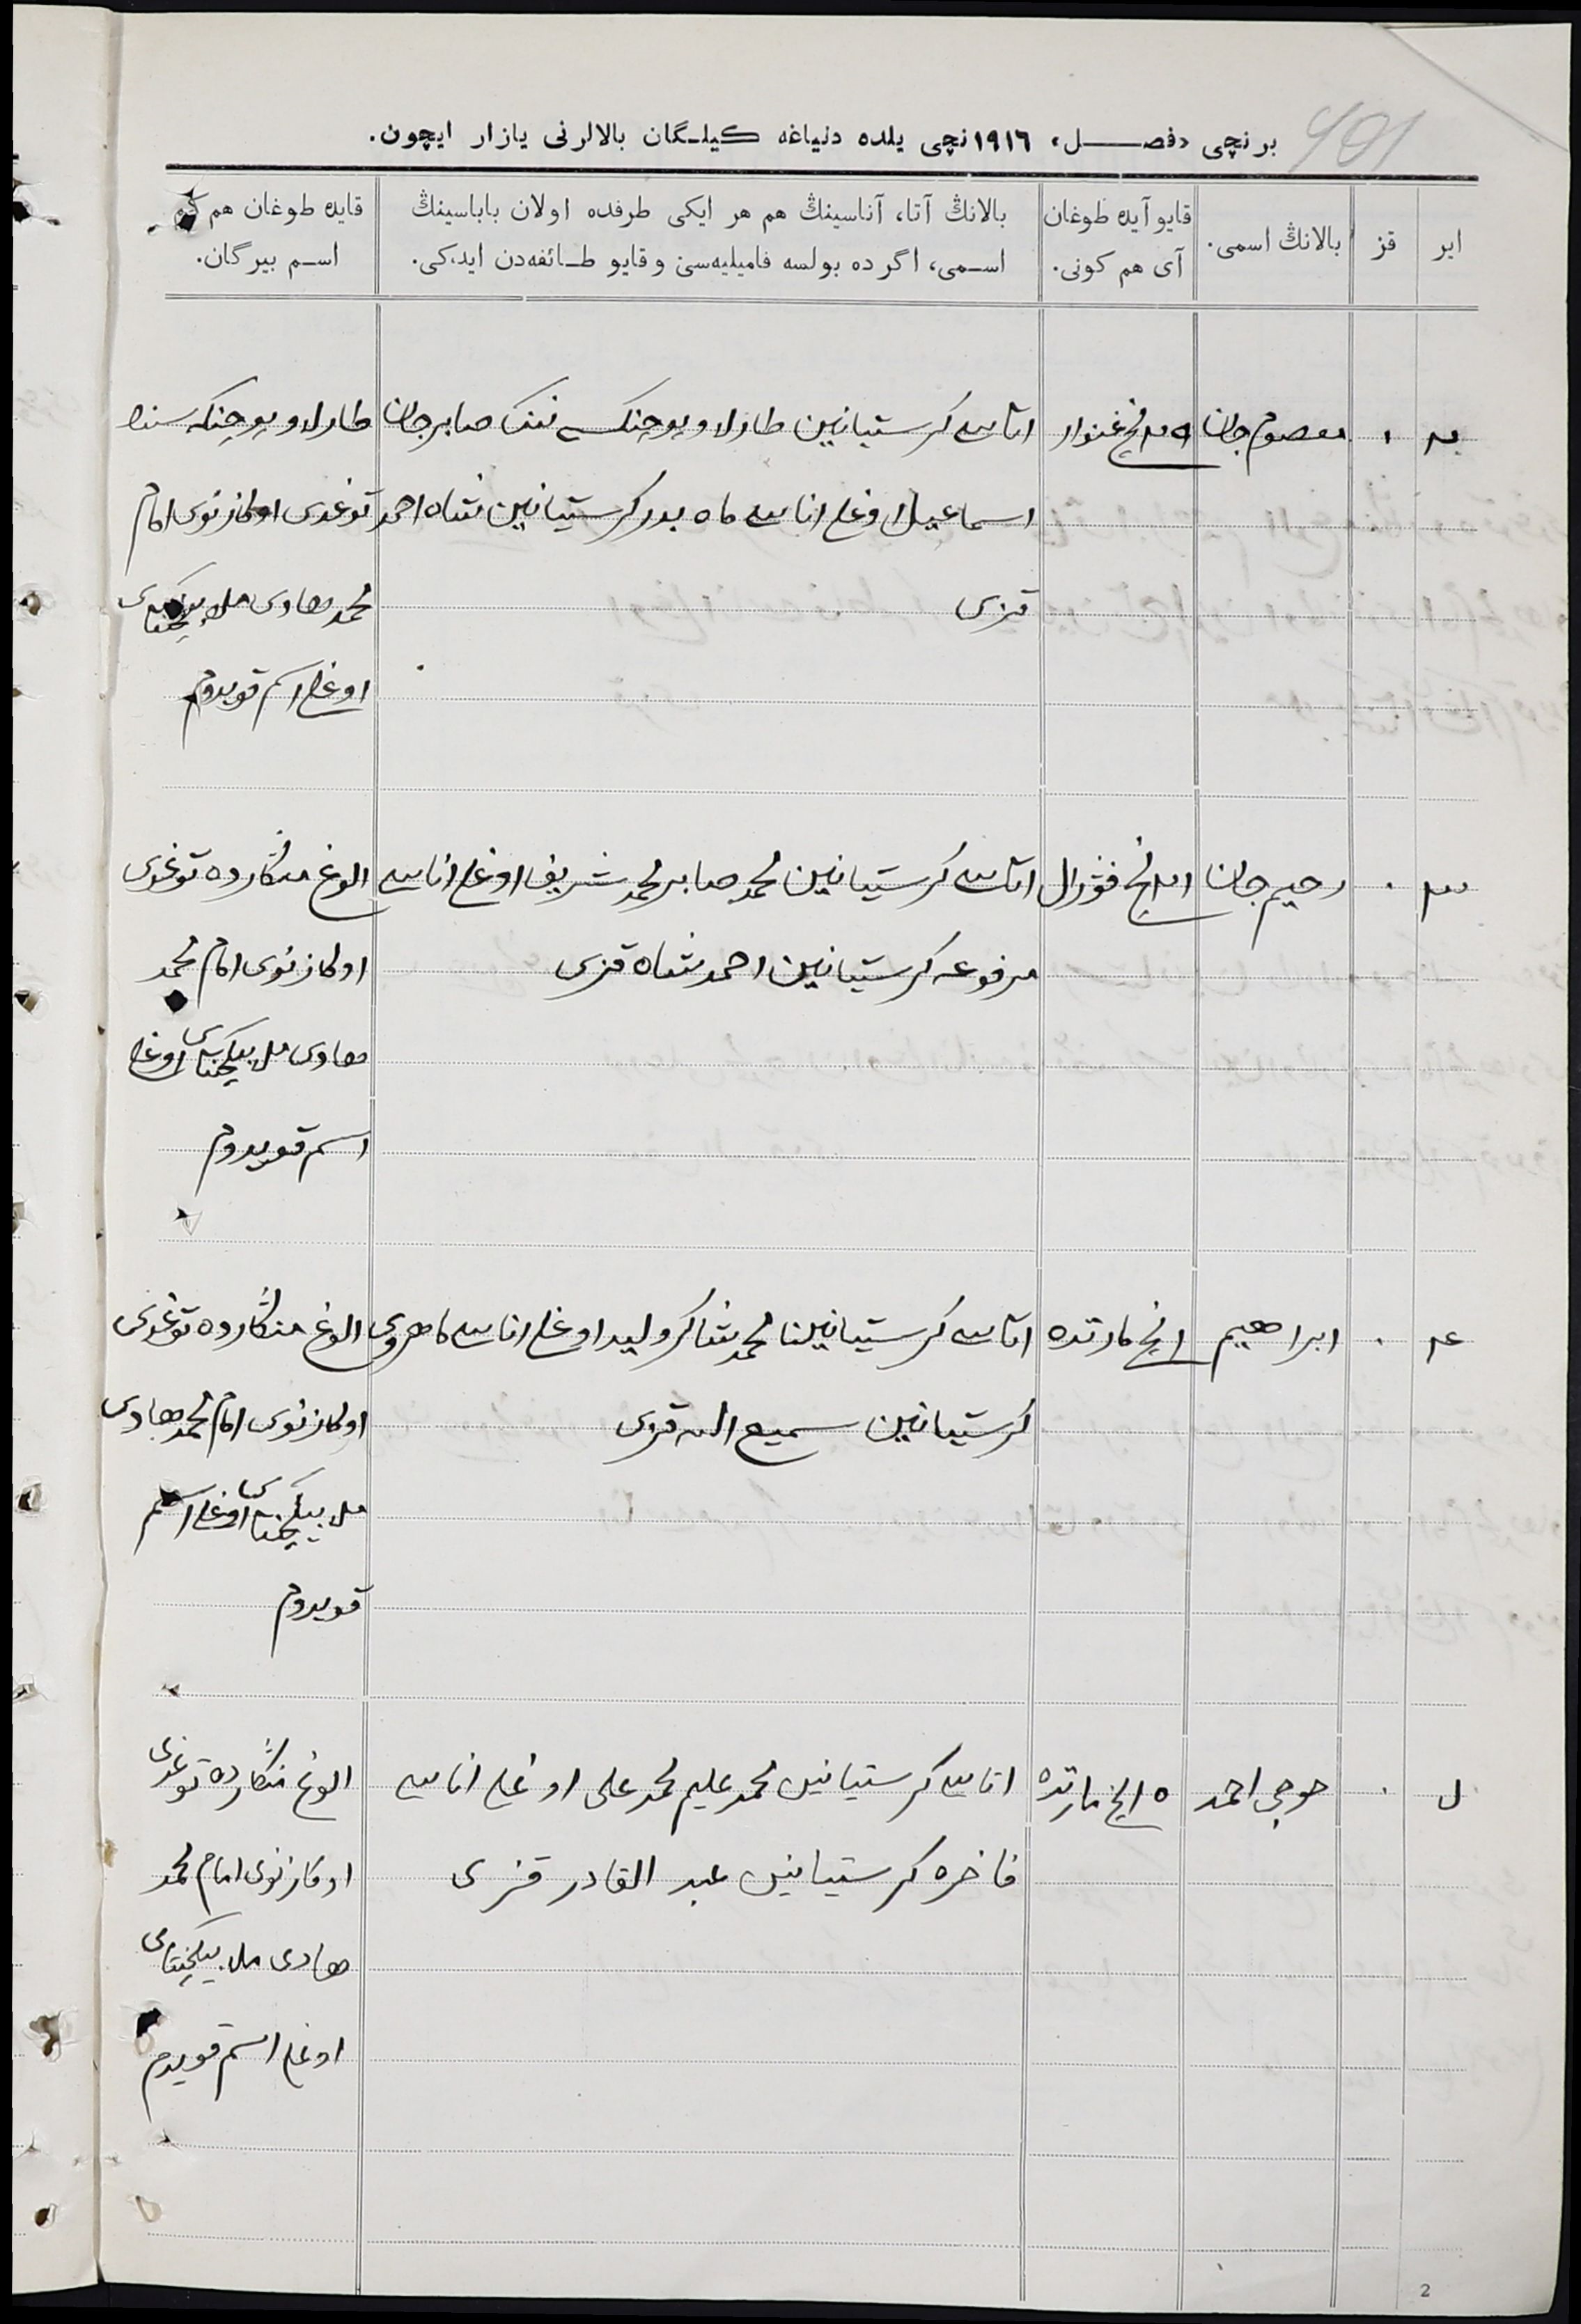 401
برنچی «فصـــــل» ١٩١٦نچی یلده دنیاغه کیلـگان بالالرنی یازار ایچون.
ایر
قز
بالانڭ اسمی.
قایو آیده طوغان
آی هم کونی.
بالانڭ آتا، آناسینڭ هم هر ایکی طرفده اولان باباسینڭ
اسـمی، اگرده بولسه فامیلیه‌سی وقایو طـائفه‌دن ایدکی.
قایده طوغان هم کم
اسـم بیرگان.
معصوم جان
اتاسی کرستیانین صابرجان
اسماعیل اوغلی اناسی ماه بدر کرستیانین شاه احمد
قزی
توغدی اوکازنوی امام
محمد هادی ملا
اوغلی اسم قویدوم
رحیم جان
اتاسی کرستیانین محمد صابر محمد شریف اوغلی اناسی
مرفوعه کرستیانین احمد شاه قزی
الوغ منکارده توغدی
اوکازنوی امام محمد
هادی ملا اوغلی
اسم قویدوم
ابراهیم
١ نچی مارتده
اتاسی کرستیانین محمد شاکر ولید اوغلی اناسی ماهروی
کرستیانین سمیع الله قزی
الوغ منکارده توغدی
اوکازنوی امام محمد هادی
ملا اوغلی اسم
قویدوم
خوجی احمد
١٥ نچی مارتده
اتاسی کرستیانین محمد علیم محمد علی اوغلی اناسی
فاخره کرستیانین عبد القادر قزی
الوغ منکارده توغدی
اوکازنوی امام محمد
هادی ملا
اوغلی اسم قویدم
2